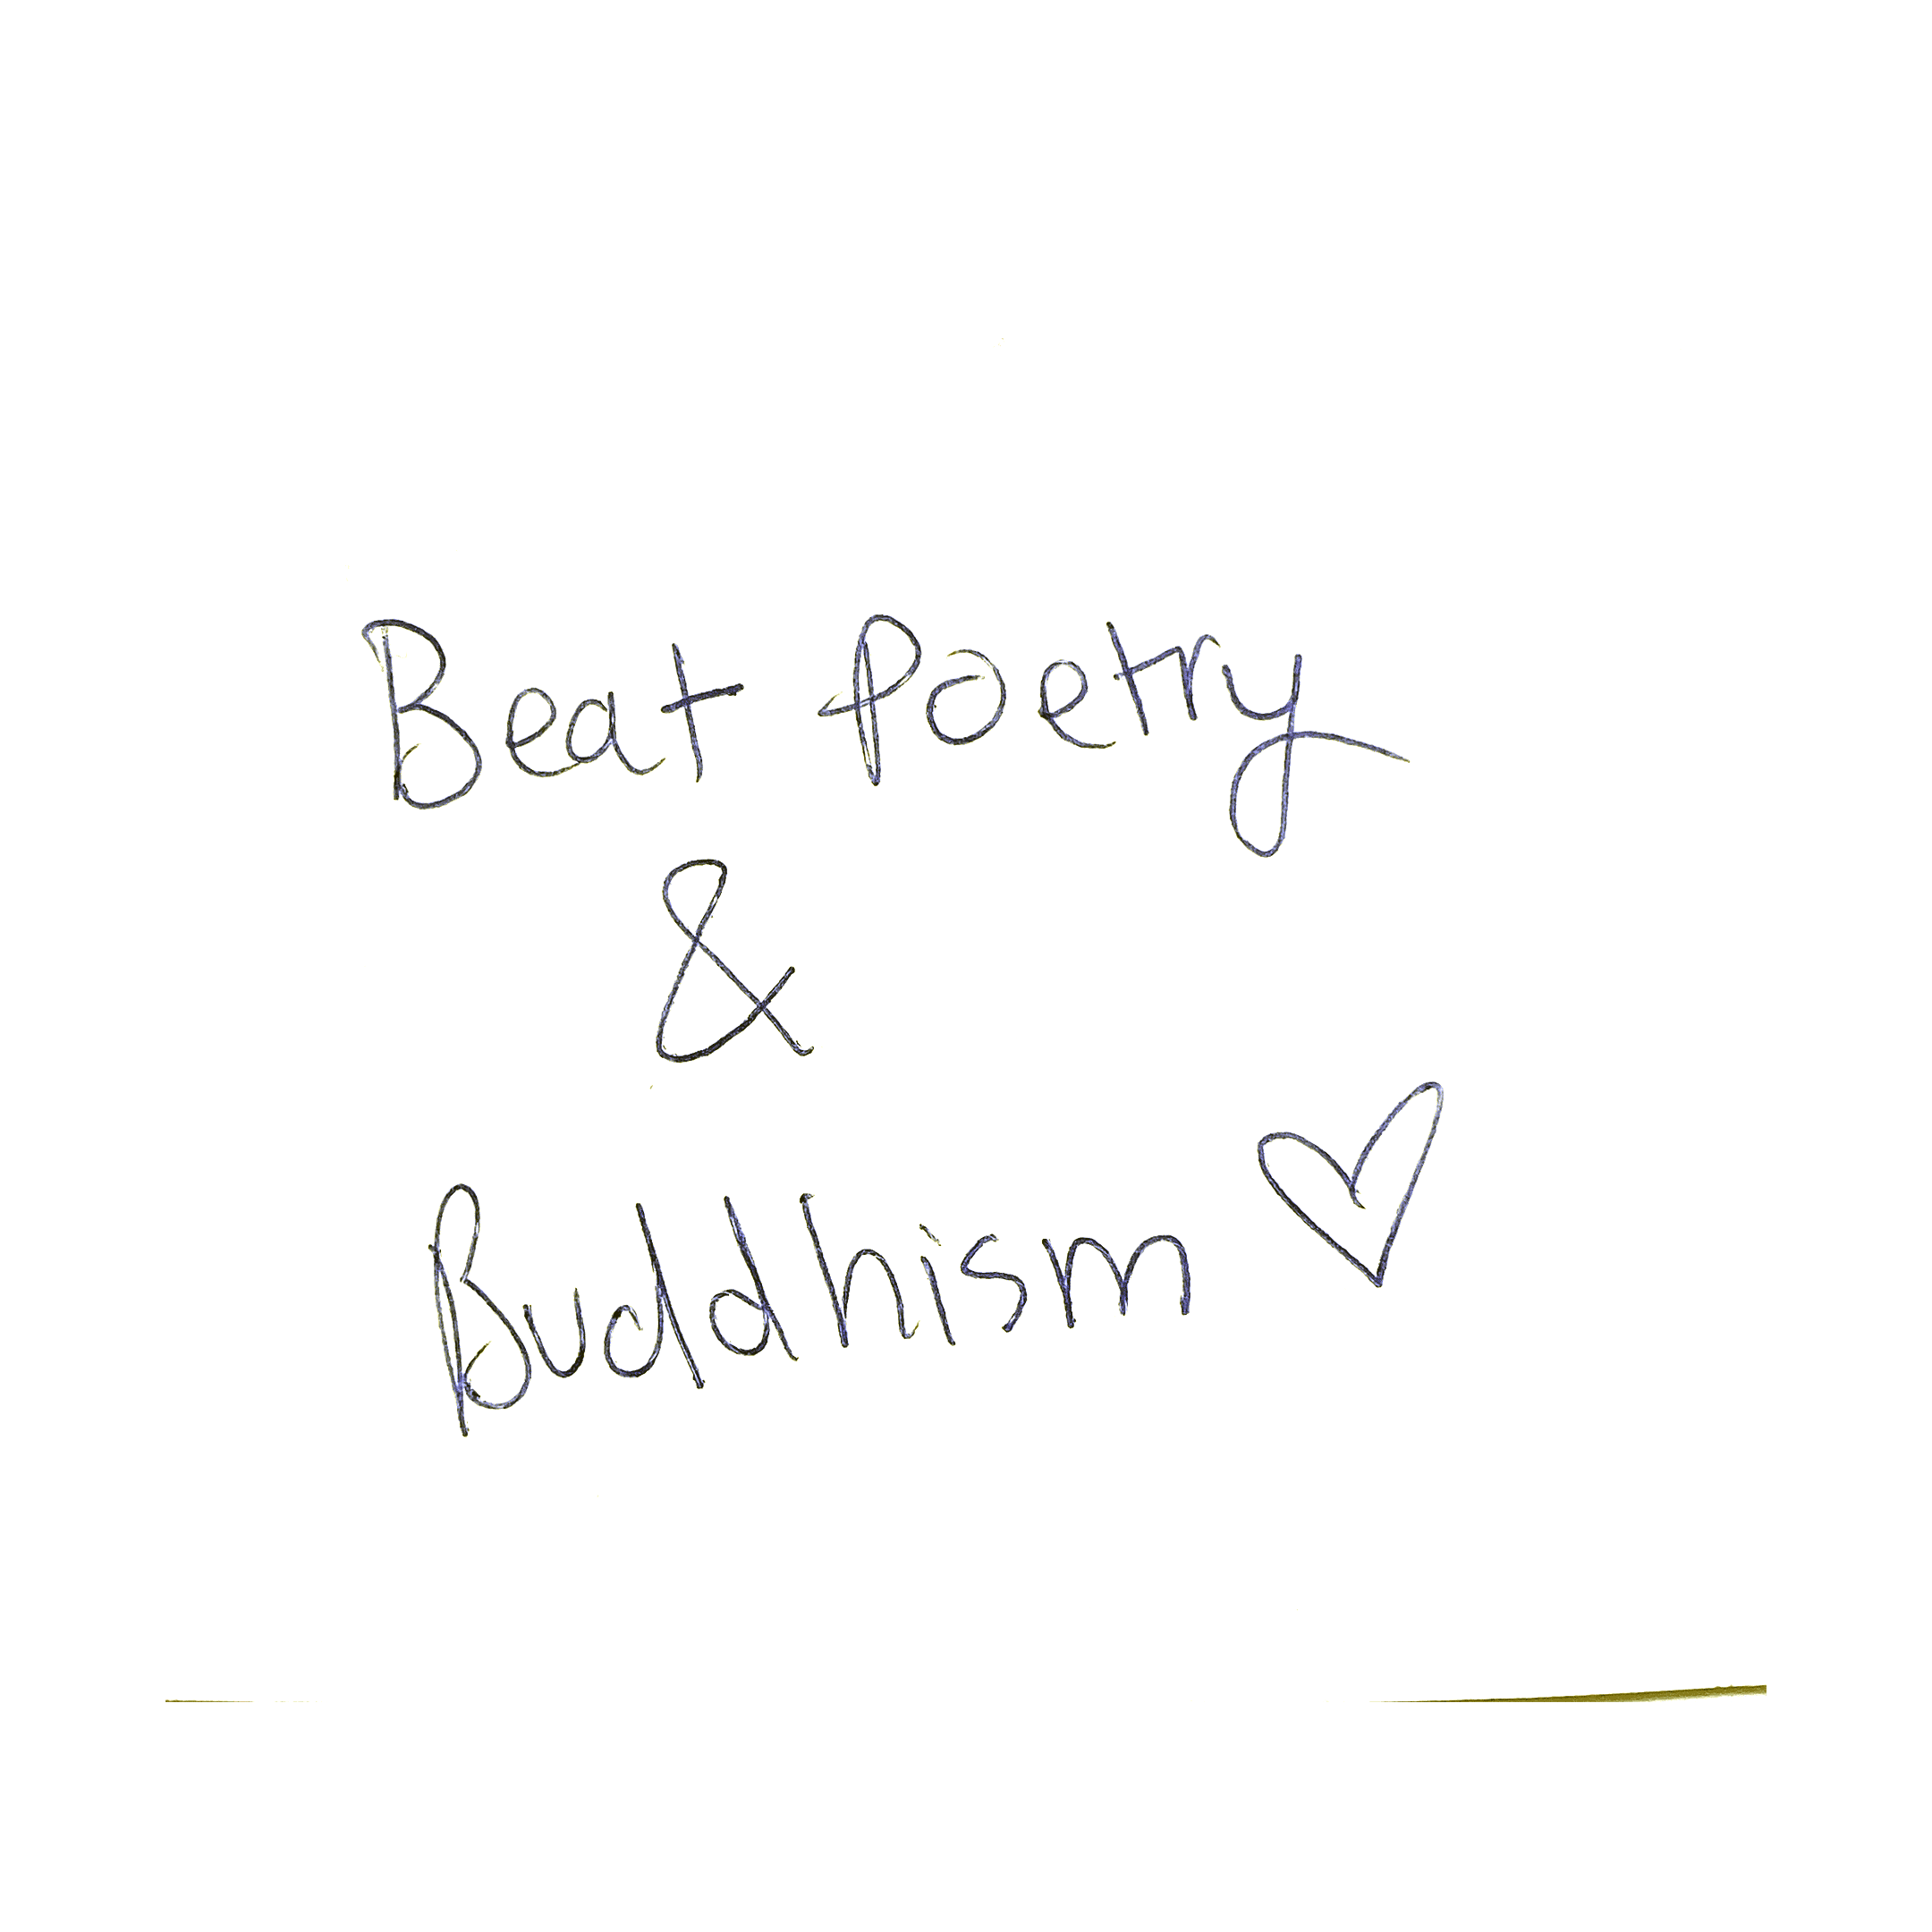 Beat Poetry
&
Buddhism ♡